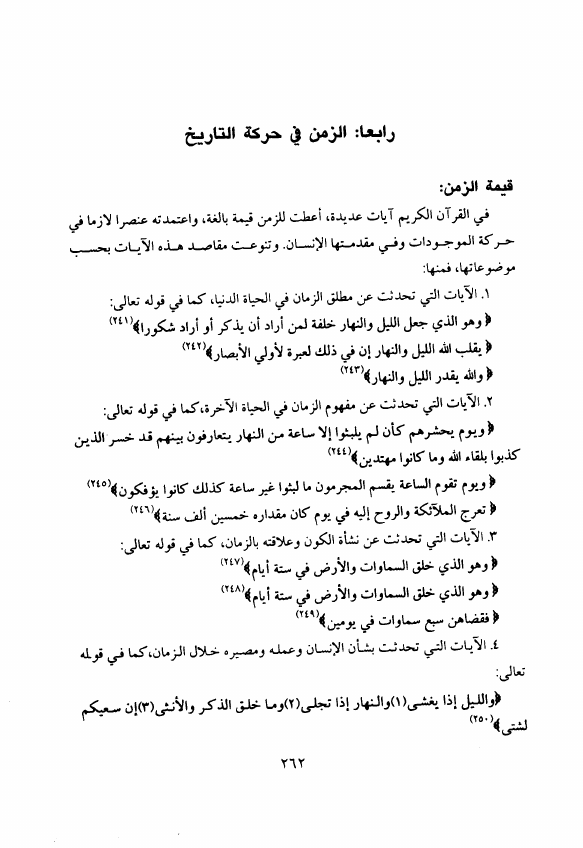 رابعا: الزمن في حركة التاريخ
قيمة الزمن:
في القرآن الكريم آيات عديدة، أعطت للزمن قيمة بالغة، واعتمدته عنصرا لازما في
حركة الموجودات وفي مقدمتها الإنسان. وتنوعت مقاصد هذه الآيات بحسب
موضوعاتها، فمنها:
١. الآيات التي تحدثت عن مطلق الزمان في الحياة الدنيا، كما في قوله تعالى:
﴿وهو الذي جعل الليل والنهار خلفة لمن أراد أن يذكر أو أراد شكورا﴾(٢٤١)
﴿يقلب الله الليل والنهار إن في ذلك لعبرة لأولي الأبصار﴾(٢٤٢)
﴿والله يقدر الليل والنهار﴾(٢٤٣)
٢. الآيات التي تحدثت عن مفهوم الزمان في الحياة الآخرة، كما في قوله تعالى:
﴿ويوم يحشرهم كأن لم يلبثوا إلا ساعة من النهار يتعارفون بينهم قد خسر الذين
كذبوا بلقاء الله وما كانوا مهتدين﴾(٢٤٤)
﴿ويوم تقوم الساعة يقسم المجرمون ما لبثوا غير ساعة كذلك كانوا يؤفكون﴾(٢٤٥)
﴿تعرج الملآئكة والروح إليه في يوم كان مقداره خمسين ألف سنة﴾(٢٤٦)
٣. الآيات التي تحدثت عن نشأة الكون وعلاقته بالزمان، كما في قوله تعالى:
﴿وهو الذي خلق السماوات والأرض في ستة أيام﴾(٢٤٧)
﴿وهو الذي خلق السماوات والأرض في ستة أيام﴾(٢٤٨)
﴿فقضاهن سبع سماوات في يومين﴾(٢٤٩)
٤. الآيات التي تحدثت بشأن الإنسان وعمله ومصيره خلال الزمان، كما في قوله
تعالى:
﴿والليل إذا يغشى(١)والنهار إذا تجلى(٢)وما خلق الذكر والأنثى(٣)إن سعيكم
لشتى﴾(٢٥٠)
٢٦٢